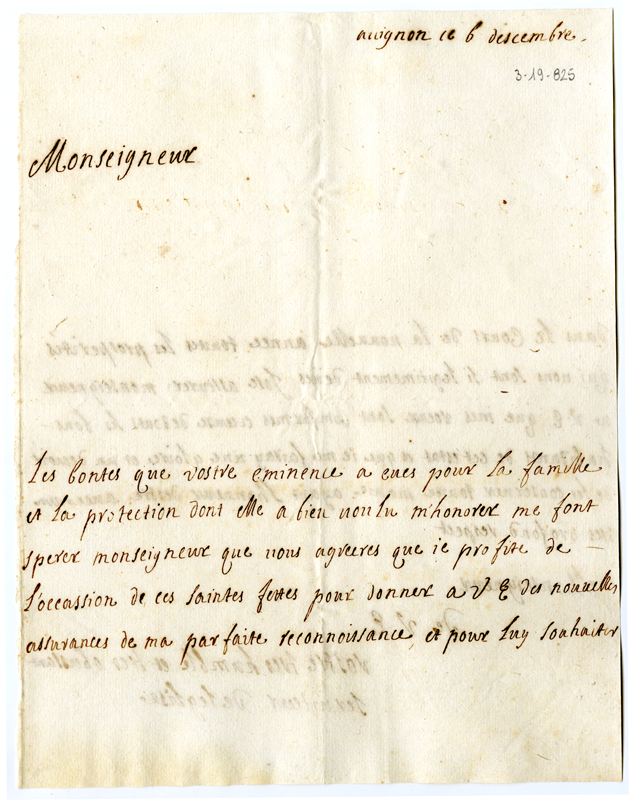 avignon ce 6 descembre.
3-19-825
Monseigneur
Les bontes que vostre eminence a eues pour la famille
et la protection dont elle a bien voulu m'honorer me font
sperer monseigneur que vous agreeres que ie profite de
l'occassion de ces saintes fettes pour donner a V E des nouvelles
assurances de ma parfaite reconnoissance, et pour luy souhaiter